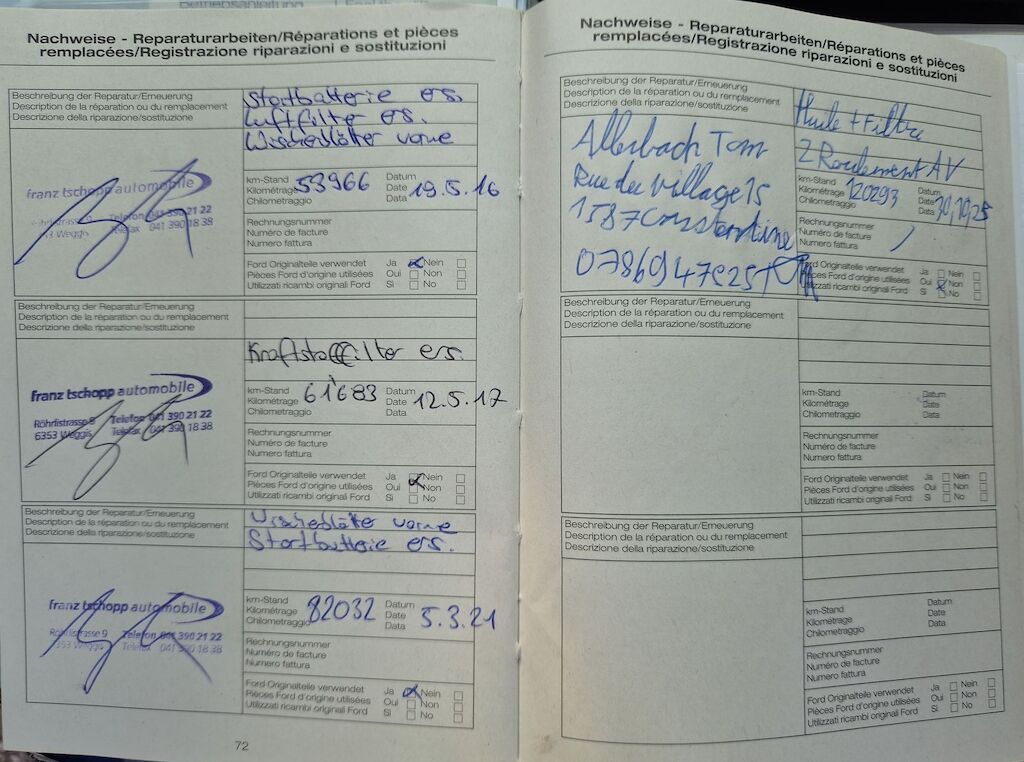 Betriebsanleitung
Nachweise - Reparaturarbeiten/Réparations et pièces
remplacées/Registrazione riparazioni e sostituzioni
Beschreibung der Reparatur/Erneuerung
Description de la réparation ou du remplacement
Descrizione della riparazione/sostituzione
Startbatterie ers.
Luftfilter ers.
Wischerblätter vorne
franz tschopp automobile
Telefon 041 390 21 22
6353 Weggis Telefax 041 390 18 38
km-Stand
Kilométrage
Chilometraggio
53966
Datum
Date
Data
19.5.16
Rechnungsnummer
Numéro de facture
Numero fattura
Ford Originalteile verwendet Ja Nein
Pièces Ford d'origine utilisées Oui Non
Utilizzati ricambi originali Ford Si No
Beschreibung der Reparatur/Erneuerung
Description de la réparation ou du remplacement
Descrizione della riparazione/sostituzione
Kraftstofffilter ers.
franz tschopp automobile
Röhrlistrasse 9 Telefon 041 390 21 22
6353 Weggis Telefax 041 390 18 38
km-Stand
Kilométrage
Chilometraggio
61683
Datum
Date
Data
12.5.17
Rechnungsnummer
Numéro de facture
Numero fattura
Ford Originalteile verwendet Ja Nein
Pièces Ford d'origine utilisées Oui Non
Utilizzati ricambi originali Ford Si No
Beschreibung der Reparatur/Erneuerung
Description de la réparation ou du remplacement
Descrizione della riparazione/sostituzione
Wischerblätter vorne
Startbatterie ers.
franz tschopp automobile
Röhrlistrasse 9 Telefon 041 390 21 22
6353 Weggis Telefax 041 390 18 38
km-Stand
Kilométrage
Chilometraggio
82032
Datum
Date
Data
5.3.21
Rechnungsnummer
Numéro de facture
Numero fattura
Ford Originalteile verwendet Ja Nein
Pièces Ford d'origine utilisées Oui Non
Utilizzati ricambi originali Ford Si No
72
Nachweise - Reparaturarbeiten/Réparations et pièces
remplacées/Registrazione riparazioni e sostituzioni
Beschreibung der Reparatur/Erneuerung
Description de la réparation ou du remplacement
Descrizione della riparazione/sostituzione
Huile + Filtre
2 Roulement AV
Allerbach Tom
Rue du Village 15
1587 Constantine
0786947525
km-Stand
Kilométrage
Chilometraggio
120293
Datum
Date
Data
30,10,25
Rechnungsnummer
Numéro de facture
Numero fattura
Ford Originalteile verwendet Ja Nein
Pièces Ford d'origine utilisées Oui Non
Utilizzati ricambi originali Ford Si No
Beschreibung der Reparatur/Erneuerung
Description de la réparation ou du remplacement
Descrizione della riparazione/sostituzione
km-Stand
Kilométrage
Chilometraggio
Datum
Date
Data
Rechnungsnummer
Numéro de facture
Numero fattura
Ford Originalteile verwendet Ja Nein
Pièces Ford d'origine utilisées Oui Non
Utilizzati ricambi originali Ford Si No
Beschreibung der Reparatur/Erneuerung
Description de la réparation ou du remplacement
Descrizione della riparazione/sostituzione
km-Stand
Kilométrage
Chilometraggio
Datum
Date
Data
Rechnungsnummer
Numéro de facture
Numero fattura
Ford Originalteile verwendet Ja Nein
Pièces Ford d'origine utilisées Oui Non
Utilizzati ricambi originali Ford Si No